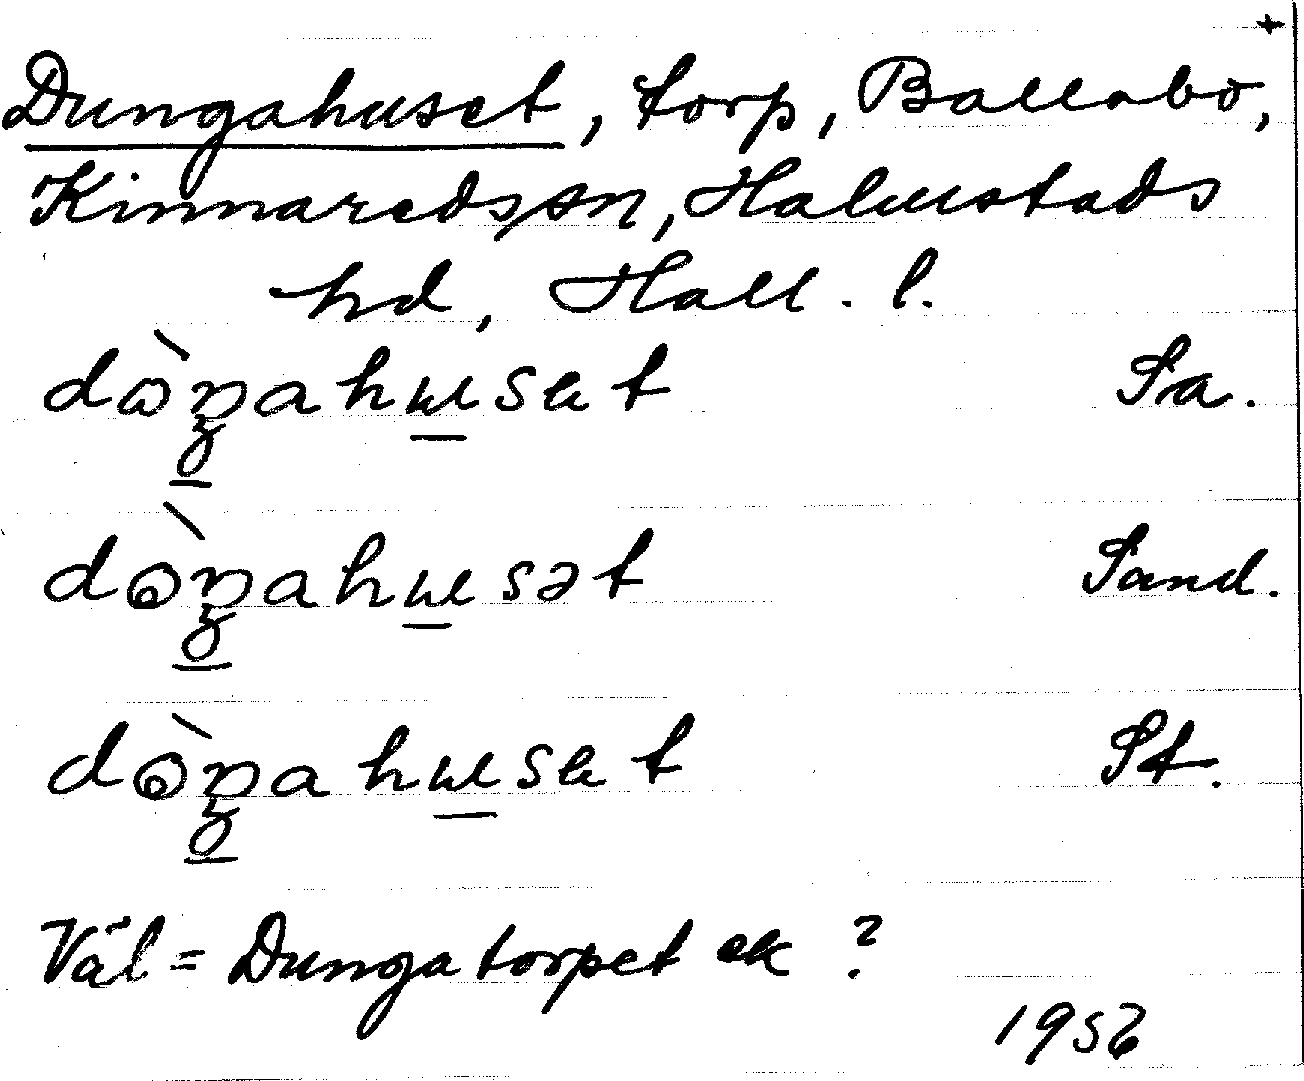 +
Dungahuset, torp, Ballabo,
Kinnareds sn, Halmstads
hd, Hall. l.
dòŋahusæt Sa.
dòŋahusət Sand.
dòŋahusæt St.
Väl = Dungatorpet ek ?
1956